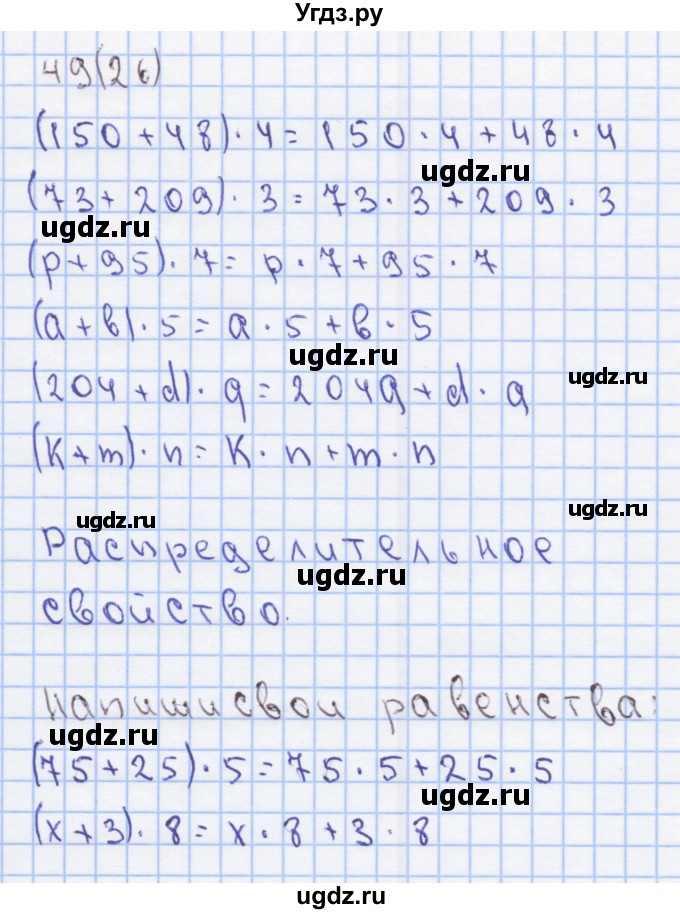 Угдз.ру
49(26)
(150+48)·4=150·4+48·4
ugdz.ru
(73+209)·3=73·3+209·3
ugdz.ru
(p+95)·7=p·7+95·7
(a+в)·5=a·5+в·5
ugdz.ru
ugdz.ru
(204+d)·q=204q+d·q
(k+m)·n=k·n+m·n
ugdz.ru
ugdz.ru
Распределительное
ugdz.ru
свойство.
Напиши свои равенства:
ugdz.ru
(75+25)·5=75·5+25·5
ugdz.ru
(x+3)·8=x·8+3·8
ugdz.ru